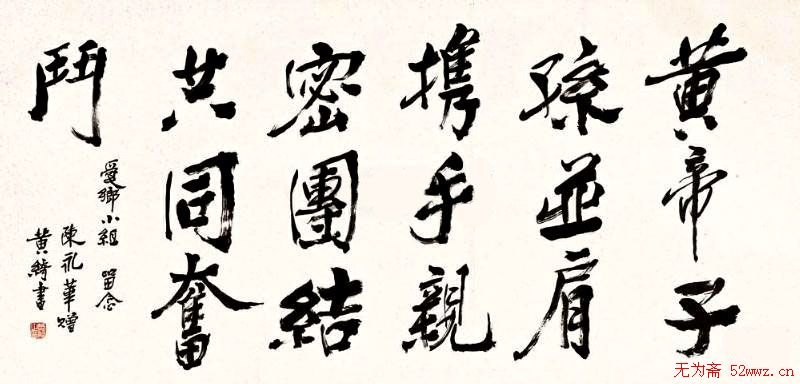 黃帝子
孫並肩
攜手親
密團結
共同奮
鬥
愛鄉小組 留念
陳永華贈
黄綺書
无为斋 52wwz.cn